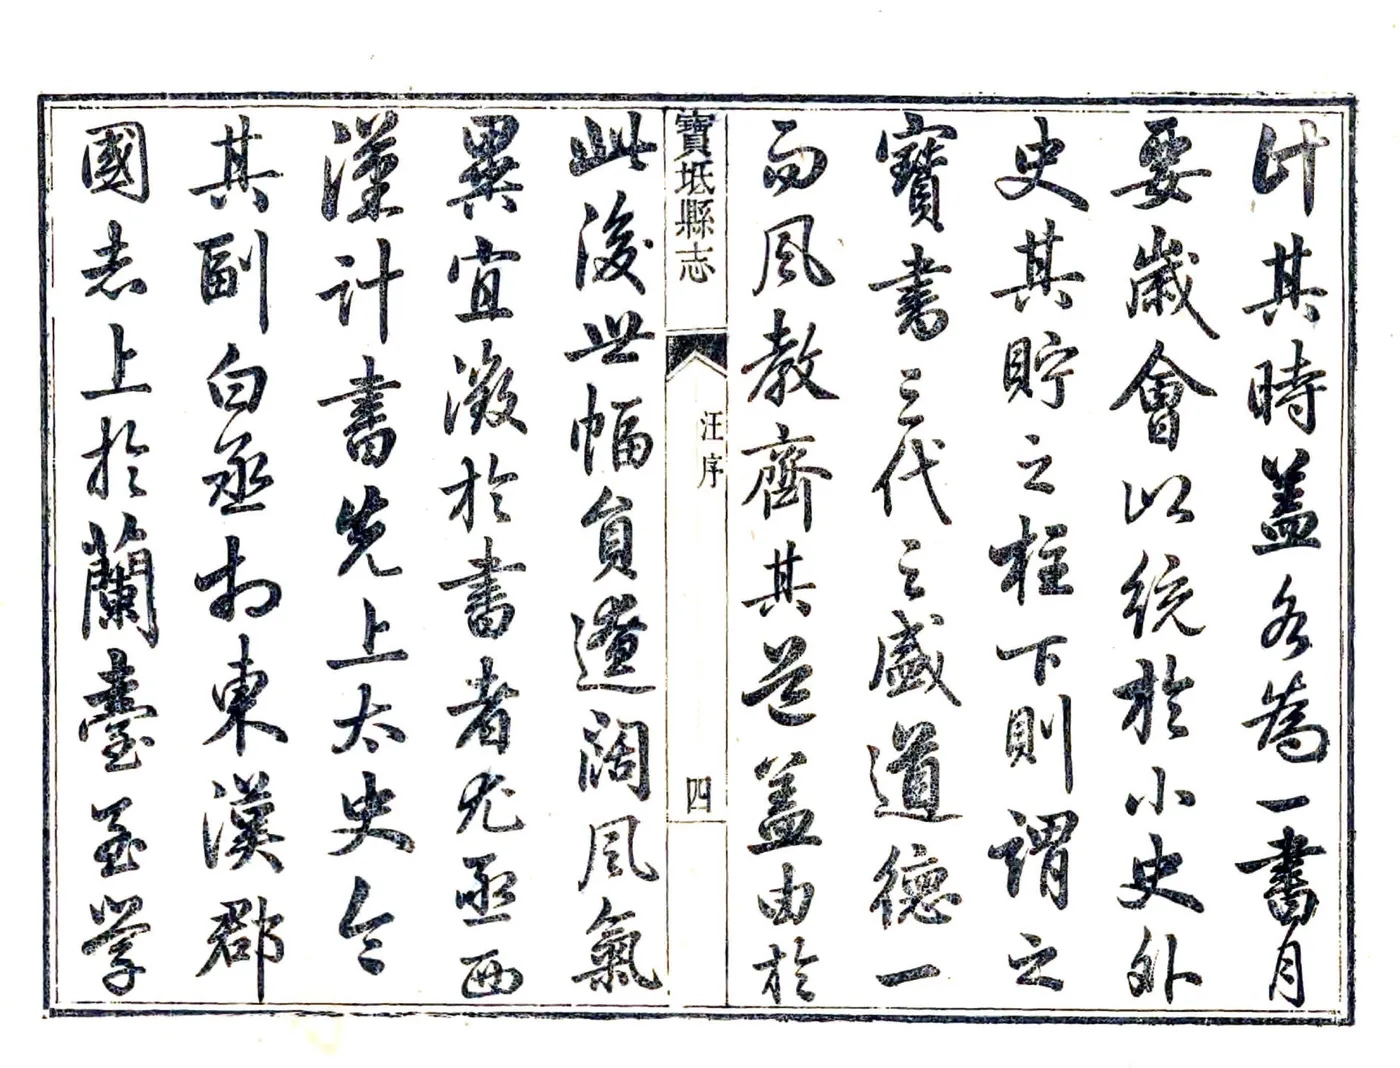 計其時蓋各為一書月
要歲會以統於小史外
史其貯之柱下則謂之
寶書三代之盛道德一
而風教齊其道蓋由於
寶坻縣志
汪序
四
此後世幅員遼闊風氣
異宜徵於書者尤亟西
漢計書先上太史令
其副白丞相東漢郡
國志上於蘭臺至學